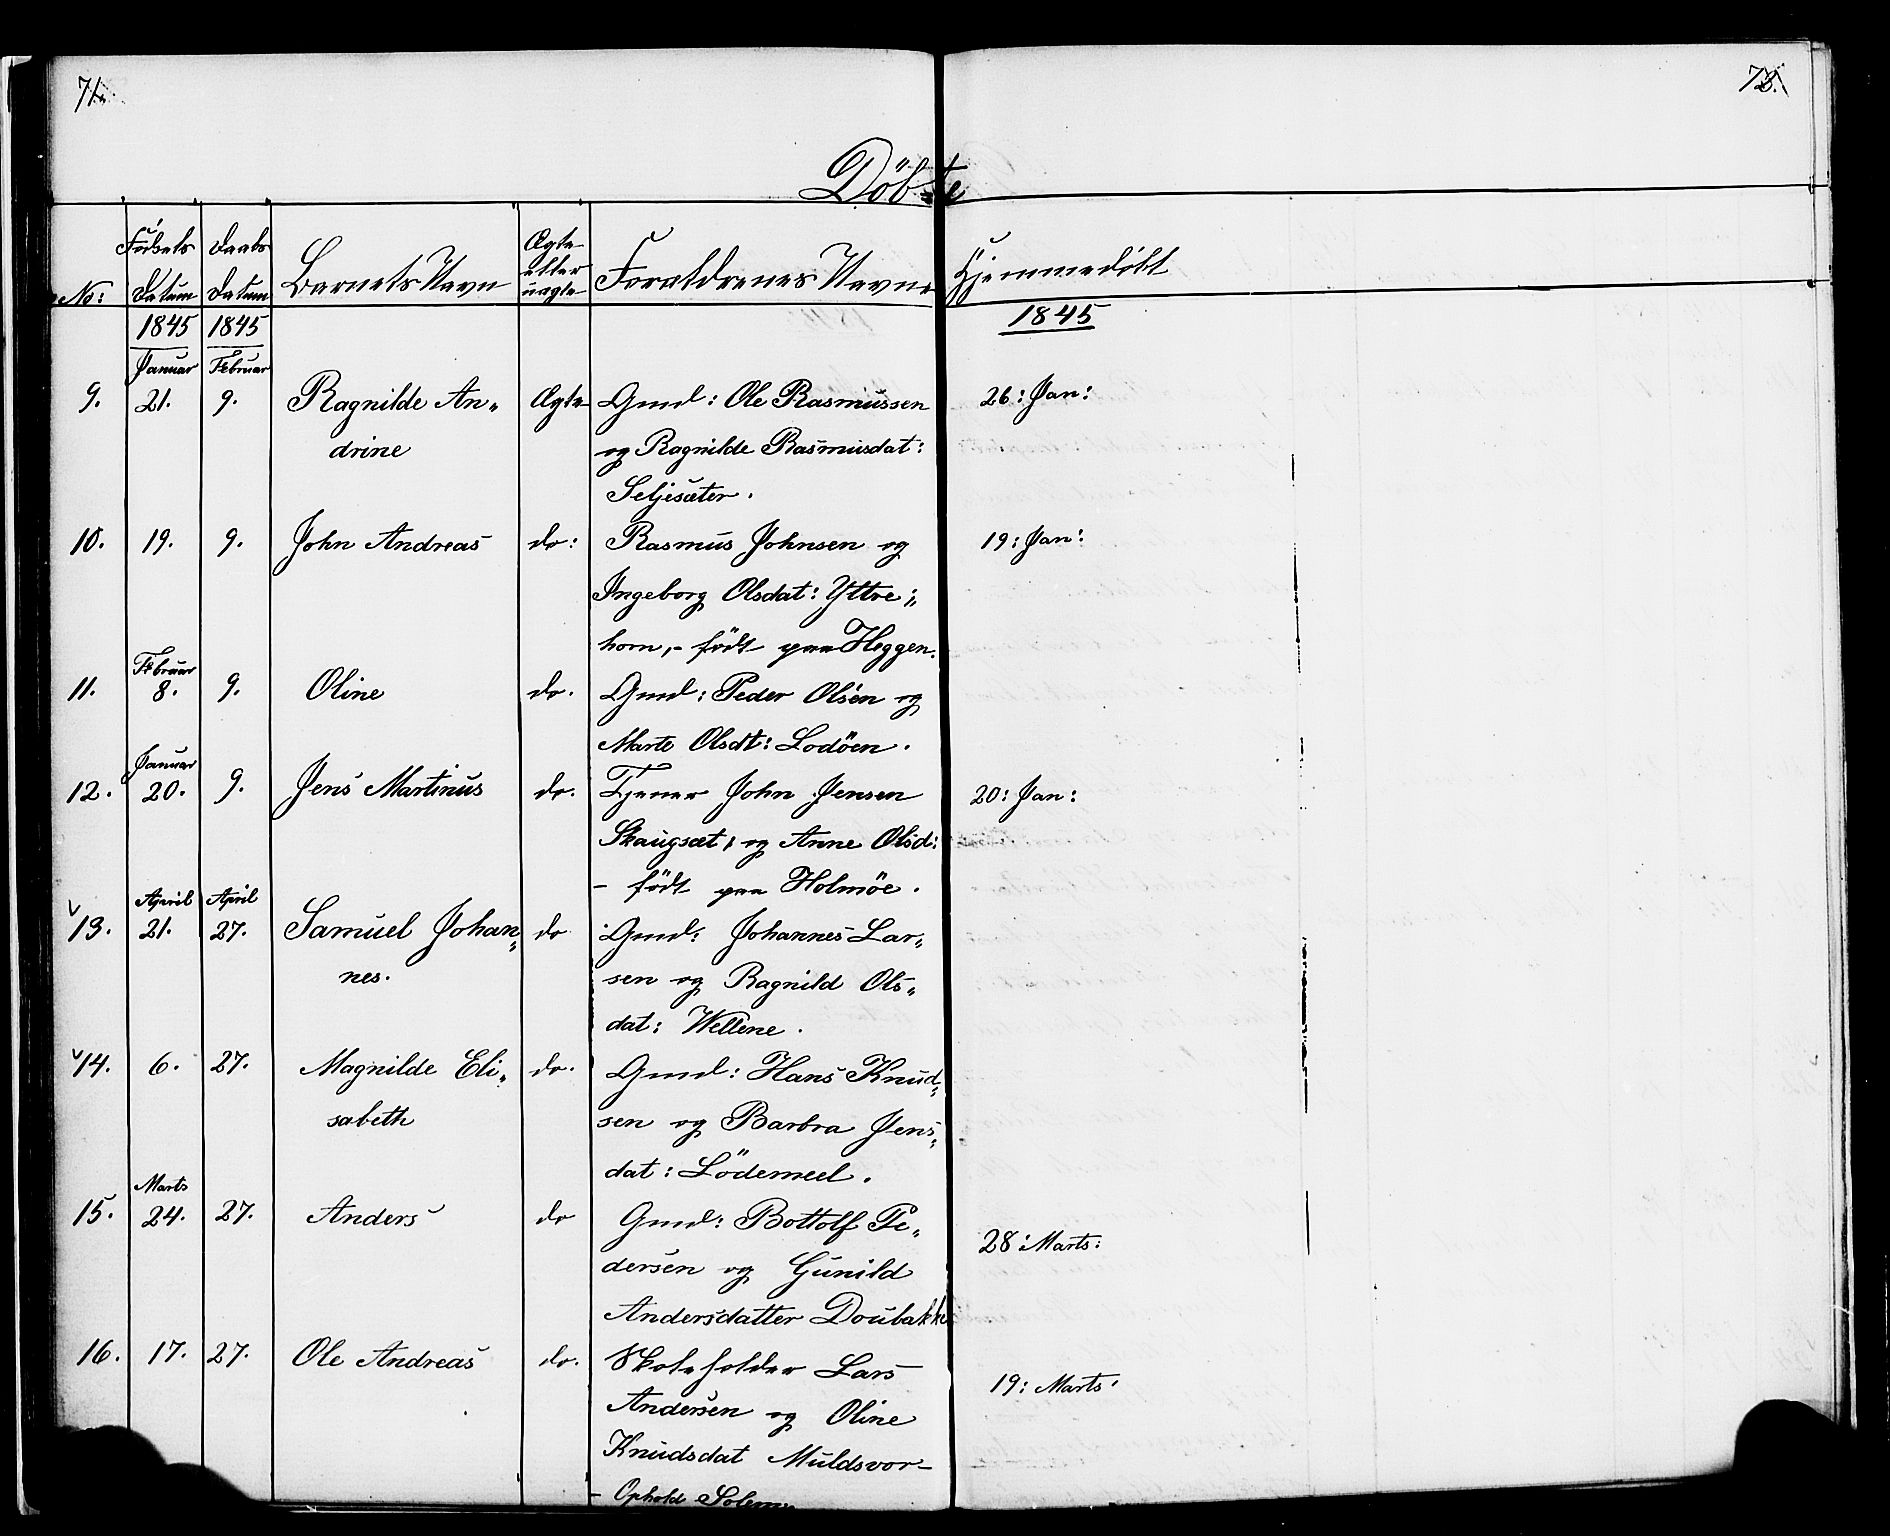 71.
Döbte
No: Fødsels Datum Daabs Datum Barnets Navn Ægte eller uægte Foreldrenes Navne Hjemmedøbt
1845 1845 1845
Januar Februar
9. 21. 9. Ragnilde An„ Ægte Gmd: Ole Rasmussen 26: Jan:
drine og Ragnilde Rasmusdat:
Seljesæter.
10. 19. 9. John Andreas do: Rasmus Johnsen og 19: Jan:
Ingeborg Olsdat: Yttre„
horn,- født paa Heggen.
Februar
11. 8. 9. Oline do. Gmd: Peder Olsen og
Marte Olsdt: Lodöen.
Januar
12. 20. 9. Jens Martinus do. Tjener John Jensen 20: Jan:
Skaugsæt, og Anne Olsd:
- født paa Holmöe.
April April
13. 21. 27. Samuel Johan„ do Gmd: Johannes Lar„
nes. sen og Ragnild Ols„
dat: Wellene.
14. 6. 27. Magnilde Eli„ do. Gmd: Hans Knud„
sabeth sen og Barbra Jens„
dat: Lödemeel.
Marts
15. 24. 27. Anders do Gmd: Bottolf Pe„ 28: Marts:
dersen og Gunild
Andersdatter Doubakke
16. 17. 27. Ole Andreas do. Skoleholder Lars 19: Marts:
Andersen og Oline
Knudsdat Muldsvor-
- Ophold Solem